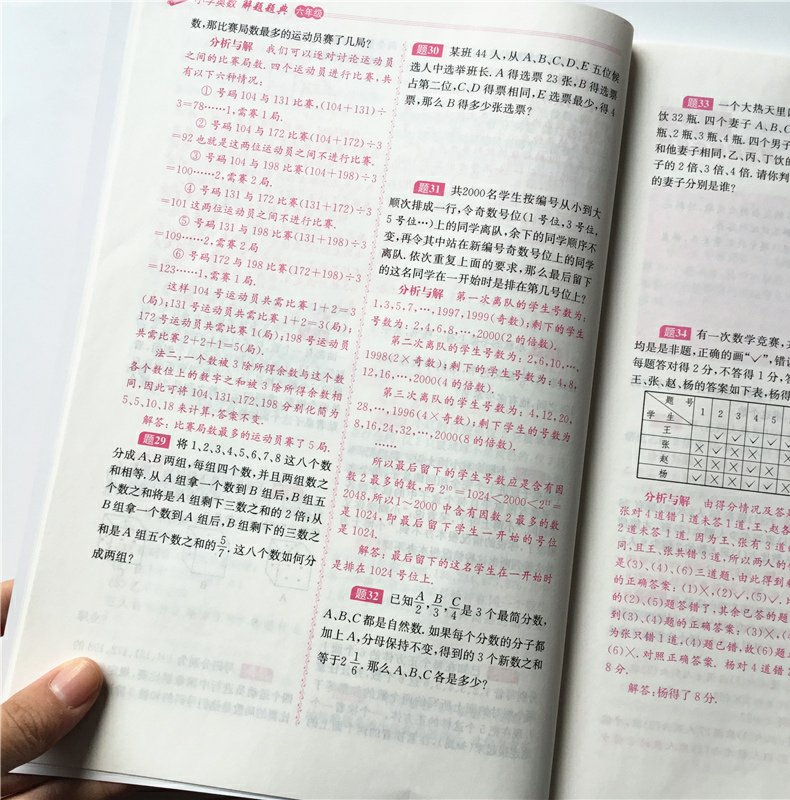 小学奥数 解题题典 六年级
数,那比赛局数最多的运动员赛了几局?
分析与解 我们可以逐对讨论运动员
之间的比赛局数.四个运动员进行比赛,共
有以下六种情况:
① 号码104与131比赛,(104+131)÷
3=78……1,需赛1局.
② 号码104与172比赛(104+172)÷3
=92也就是这两位运动员之间不进行比赛.
③ 号码104与198比赛(104+198)÷3
=100……2,需赛2局.
④ 号码131与172比赛(131+172)÷3
=101这两位运动员之间不进行比赛.
⑤ 号码131与198比赛(131+198)÷3
=109……2,需赛2局
⑥ 号码172与198比赛(172+198)÷3
=123……1,需赛1局.
这样104号运动员共需比赛1+2=3
(局);131号运动员共需比赛1+2=3(局);
172号运动员共需比赛1(局);198号运动员
共需比赛2+2+1=5(局).
法二:一个数被3除所得余数与这个数
各个数位上的数字之和被3除所得余数相
同,因此可将104、131、172、198分别化简为
5、5、10、18来计算,答案不变.
解答:比赛局数最多的运动员赛了5局.
题29 将1,2,3,4,5,6,7,8这八个数
分成A、B两组,每组四个数,并且两组数之
和相等.从A组拿一个数到B组后,B组五
个数之和将是A组剩下三数之和的2倍;从
B组拿一个数到A组后,B组剩下的三数之
和是A组五个数之和的5/7.这八个数如何分
成两组?
题30 某班44人,从A、B、C、D、E五位候
选人中选举班长.A得选票23张,B得选票
占第二位,C、D得票相同,E选票最少,得4
票,那么B得多少张选票?
题31 共2000名学生按编号从小到大
顺次排成一行,令奇数号位(1号位,3号位,
5号位…)上的同学离队,余下的同学顺序不
变,再令其中站在新编号奇数号位上的同学
离队.依次重复上面的要求,那么最后留下
的这名同学在一开始时是排在第几号位上?
分析与解 第一次离队的学生号数为:
1,3,5,7,…,1997,1999(奇数);剩下的学生
号数为:2,4,6,8,…,2000(2的倍数).
第二次离队的学生号数为:2,6,10,…,
1998(2×奇数);剩下的学生号数为:4,8,
12,16,…,2000(4的倍数).
第三次离队的学生号数为:4,12,20,
28,…,1996(4×奇数);剩下学生的号数为
8,16,24,32,…,2000(8的倍数).
……
所以最后留下的学生号数应是含有因
数2最多的数,而2¹⁰=1024<2000<2¹¹=
2048,所以1~2000中含有因数2最多的数
是1024,即最后留下学生一开始的号位
是1024.
解答:最后留下的这名学生在一开始时
是排在1024号位上.
题32 已知A/2,B/3,C/4是3个最简分数,
A、B、C都是自然数.如果每个分数的分子都
加上A,分母保持不变,得到的3个新数之和
等于2 1/6.那么A、B、C各是多少?
题33 一个大热天里
饮32瓶.四个妻子A、B、C
瓶、2瓶、3瓶、4瓶.四个男子
和他妻子相同,乙、丙、丁饮的
子的2倍、3倍、4倍.请你判
的妻子分别是谁?
题34 有一次数学竞赛,
均是是非题,正确的画“✓”,错误
每题答对得2分,不答得1分,答
王、张、赵、杨的答案如下表,杨得
题号 1 2 3 4 5
学生
王
张
赵
杨
分析与解 由得分情况及答
张对4道错1道未答1道,王、赵各
2道未答1道.因为王、张有3道
同,且王、张共错3道,所以两人的
是(3)、(4)、(6)三道题,由此得到
的正确答案:(1)×,(2)✓,(5)✓.
的(2)、(5)题答错了,其余已答的题
到(3)、(4)题的正确答案:(3)×,
为张只错1道,(4)题已错,故(6)题
(6)×.对照正确答案.杨对4道错
8分.
解答:杨得了8分.